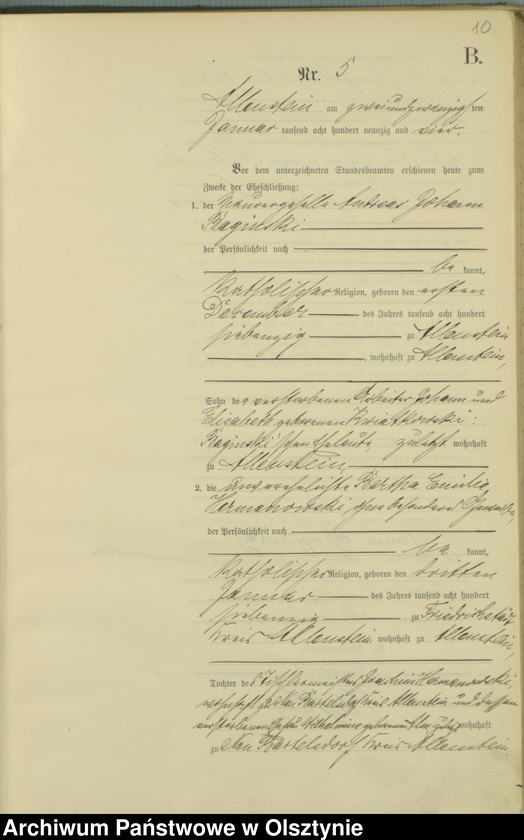 10
B.
Nr. 5
Allenstein am zweiundzwanzigsten
Januar tausend acht hundert neunzig und vier.
Vor dem unterzeichneten Standesbeamten erschienen heute zum
Zwecke der Eheschließung:
1. der Maurergeselle Andreas Johann
Baginski
der Persönlichkeit nach
be kannt,
katholischer Religion, geboren den ersten
Dezember des Jahres tausend acht hundert
siebenzig zu Allenstein
, wohnhaft zu Allenstein,
Sohn der verstorbenen Arbeiter Johann und
Elisabeth geborenen Kwiatkowski:
Baginski'schen Eheleute, zuletzt wohnhaft
zu Allenstein
2. die unverehelichte Bertha Emilie
Hermanowski, ohne besonderes Gewerbe,
der Persönlichkeit nach
be kannt,
katholischer Religion, geboren den dritten
Januar des Jahres tausend acht hundert
siebenzig zu Friedrichstädt
Kreis Allenstein, wohnhaft zu Allenstein,
Tochter des Tischlermeisters Joachim Hermanowski,
wohnhaft zu Neu Bartelsdorf Kreis Allenstein und dessen
verstorbenen Ehefrau Wilhelmine geborenen zuletzt wohnhaft
zu Neu Bartelsdorf Kreis Allenstein.
Archiwum Państwowe w Olsztynie